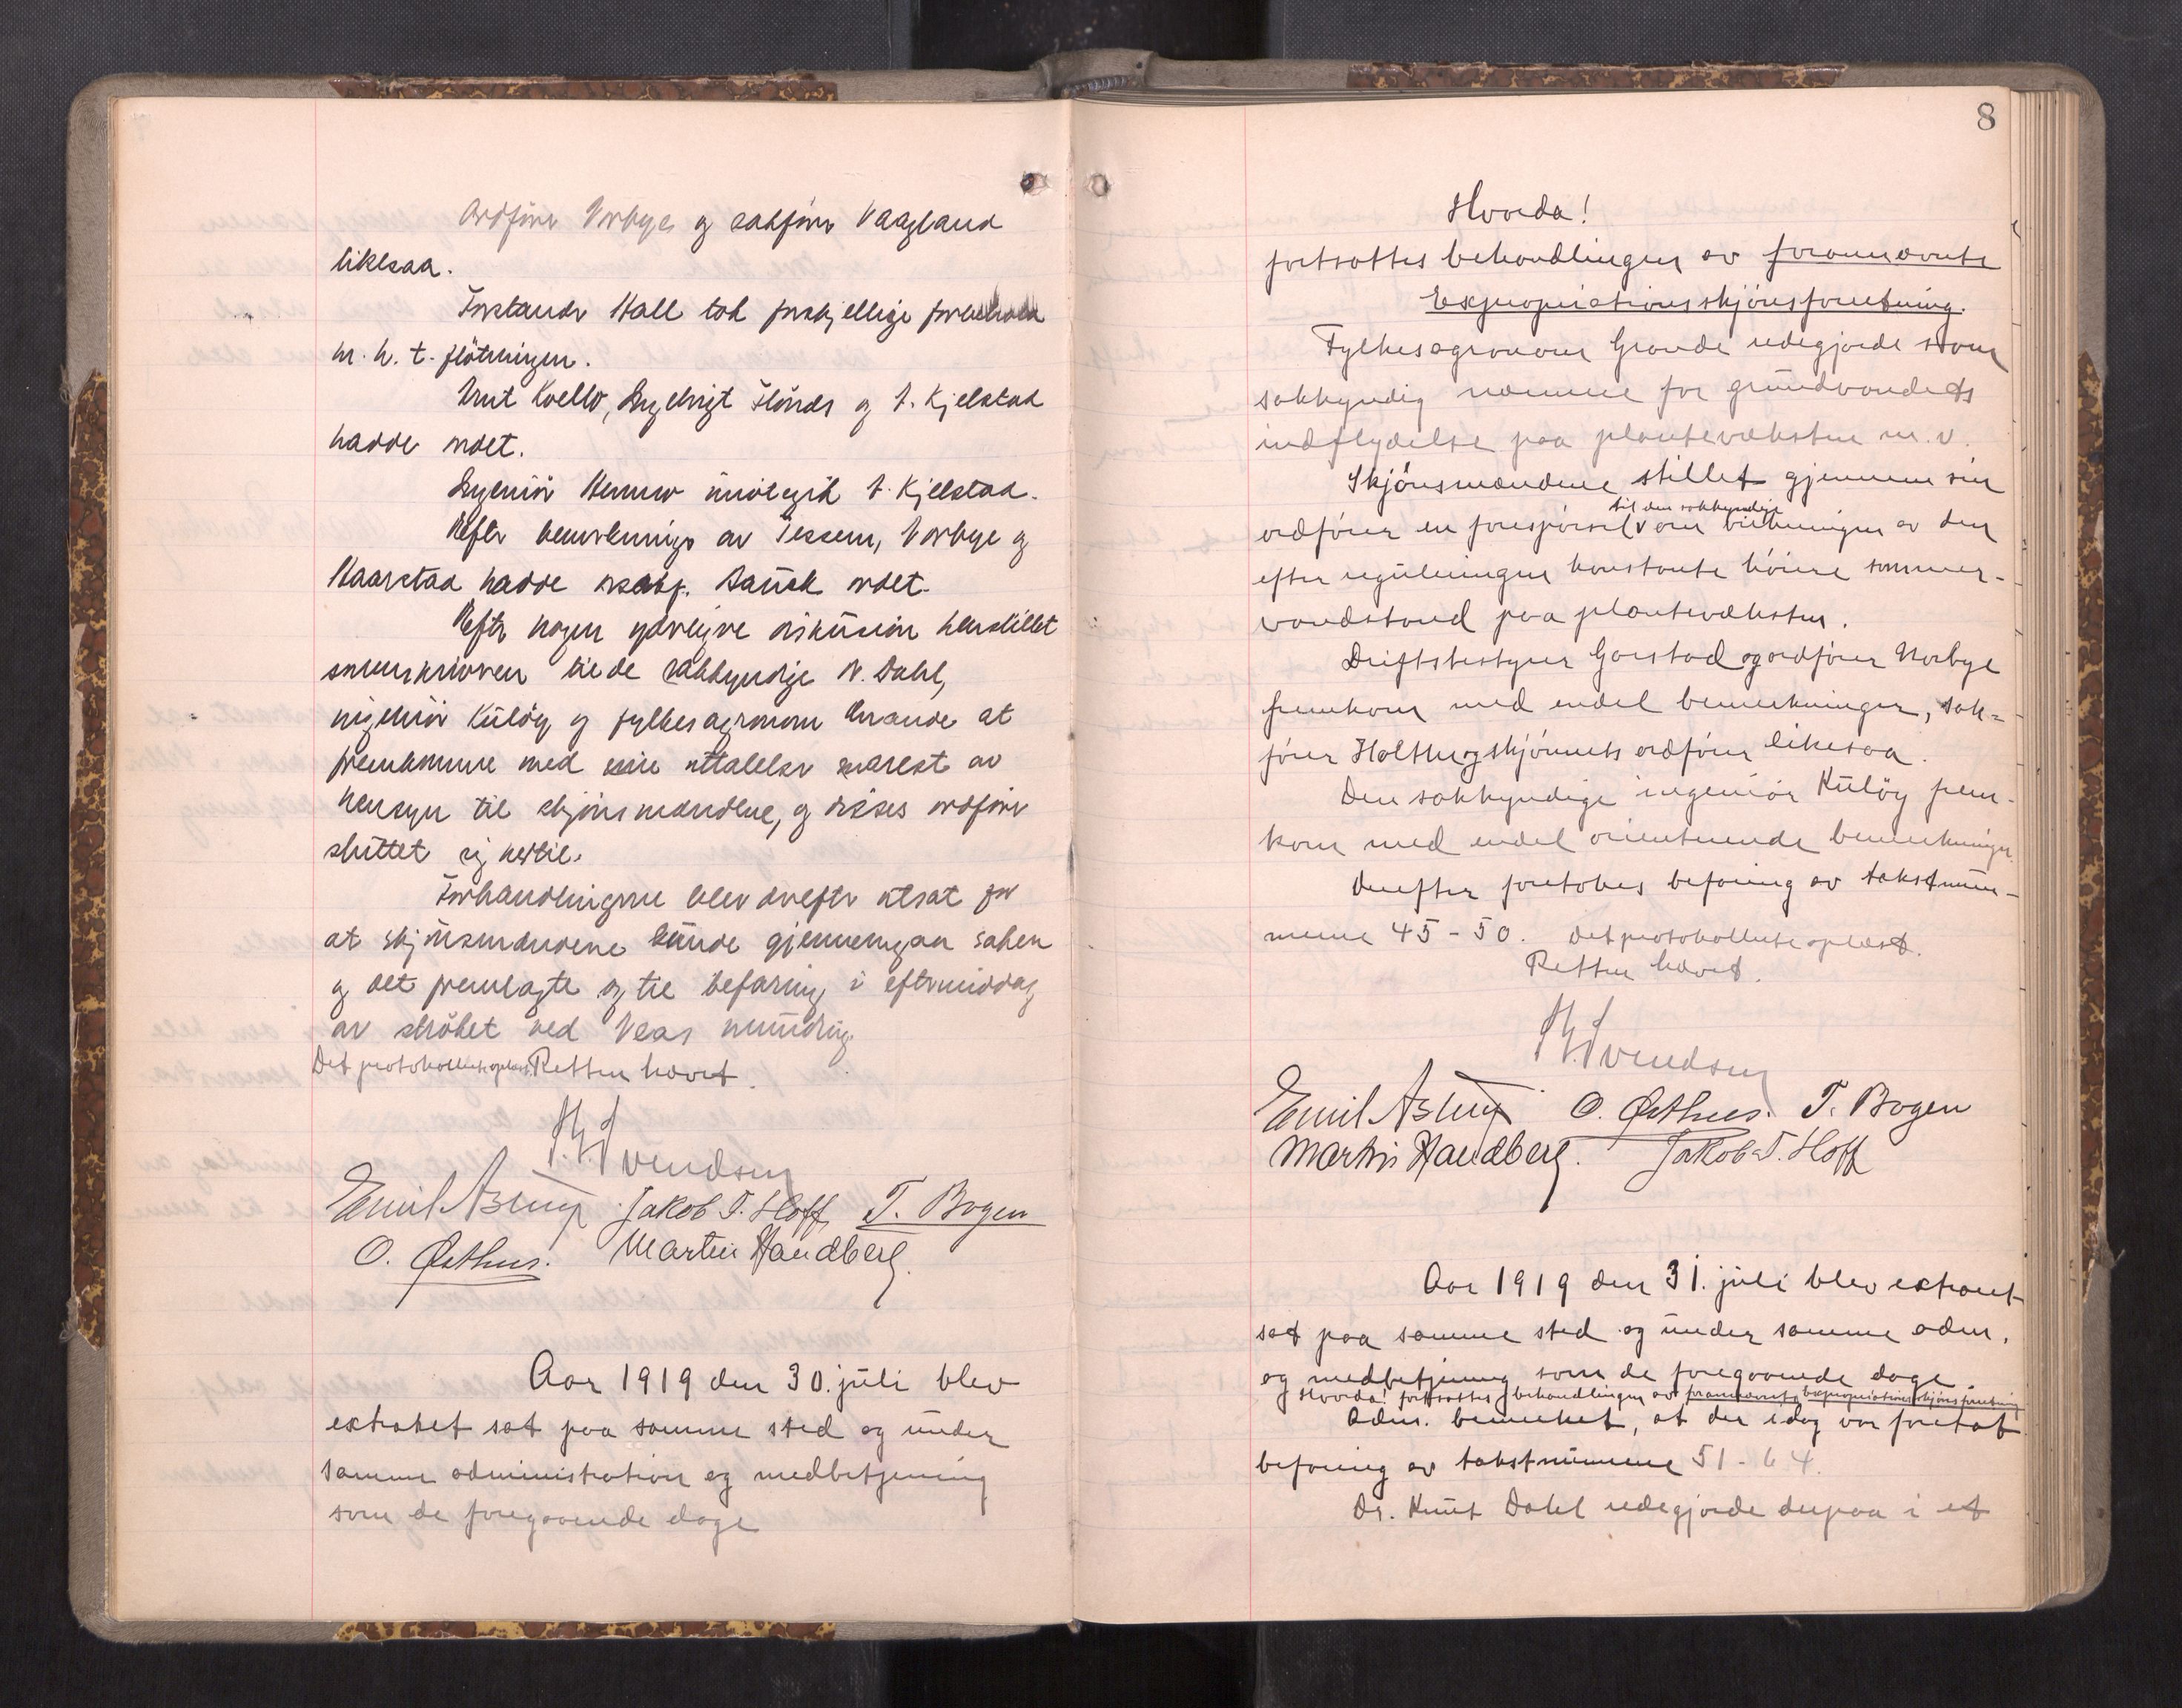 Ordfører Norbye og sakfører Vaagland
likesaa.
Forstander Hall tok forskjellige forbehold
m. h. t. fløtningen.
Knut Kvello, Ingebrigt Flønes og J. Kjelstad
hadde ordet.
Ingeniør imøtegik J. Kjelstad.
Efter bemerkninger av Tessem, Norbye og
Haarstad hadde o.r.sakf. ordet.
Efter nogen yderligere diskusion henstillet
sorenskriveren til de sakkyndige K. Dahl,
ingeniør Kuløy og fylkesagronom Grande at
fremkomme med sine uttalelser snarest av
hensyn til skjønsmændene, og disses ordfører
sluttet sig hertil.
Forhandlingerne blev derefter utsat for
at skjønsmændene kunde gjennemgaa saken
og det fremlagte og til befaring i eftermiddag
av strøket ved Veas munding.
Det protokollerte oplæst. Retten hævet.
Th. Svendsen
Emil Astrup Jakob T. Hoff T. Bogen
O. Østhus. Martin Handberg.
Aar 1919 den 30. juli blev
extraret sat paa samme sted og under
samme administration og medbetjening
som de foregaaende dage
8
Hvorda!
fortsattes behandlingen av forannævnte
Expropriationsskjønsforretning.
Fylkesagronom Grande redegjorde som
sakkyndig nærmere for grundvandets
indflydelse paa plantevæksten m.v.
Skjønsmændene stillet gjennem sin
til den sakkyndige
ordfører en forespørsel v om virkningen av den
efter reguleringen konstante høiere sommer-
vandstand paa plantevæksten.
Driftsbestyrer Garstad og ordfører Norbye
fremkom med endel bemerkninger, sak-
fører Holther og skjønnets ordfører likesaa.
Den sakkyndige ingeniør Kuløy frem-
kom med endel orienterende bemerkninger.
Derefter foretokes befaring av takstnum-
merne 45-50. Det protokollerte oplæst.
Retten hævet.
Th. Svendsen
Emil Astrup O. Østhus. T. Bogen
Martin Handberg. Jakob T. Hoff
Aar 1919 den 31. juli blev extraret
sat paa samme sted og under samme adm.
og medbetjening som de foregaaende dage.
Hvorda! fortsattes behandlingen av forannævnte Expropriationsskjønsforretning
Adm. bemerket, at der idag var foretat
befaring av takstnumrene 51-64.
Dr. Knut Dahl redegjorde derpaa i et